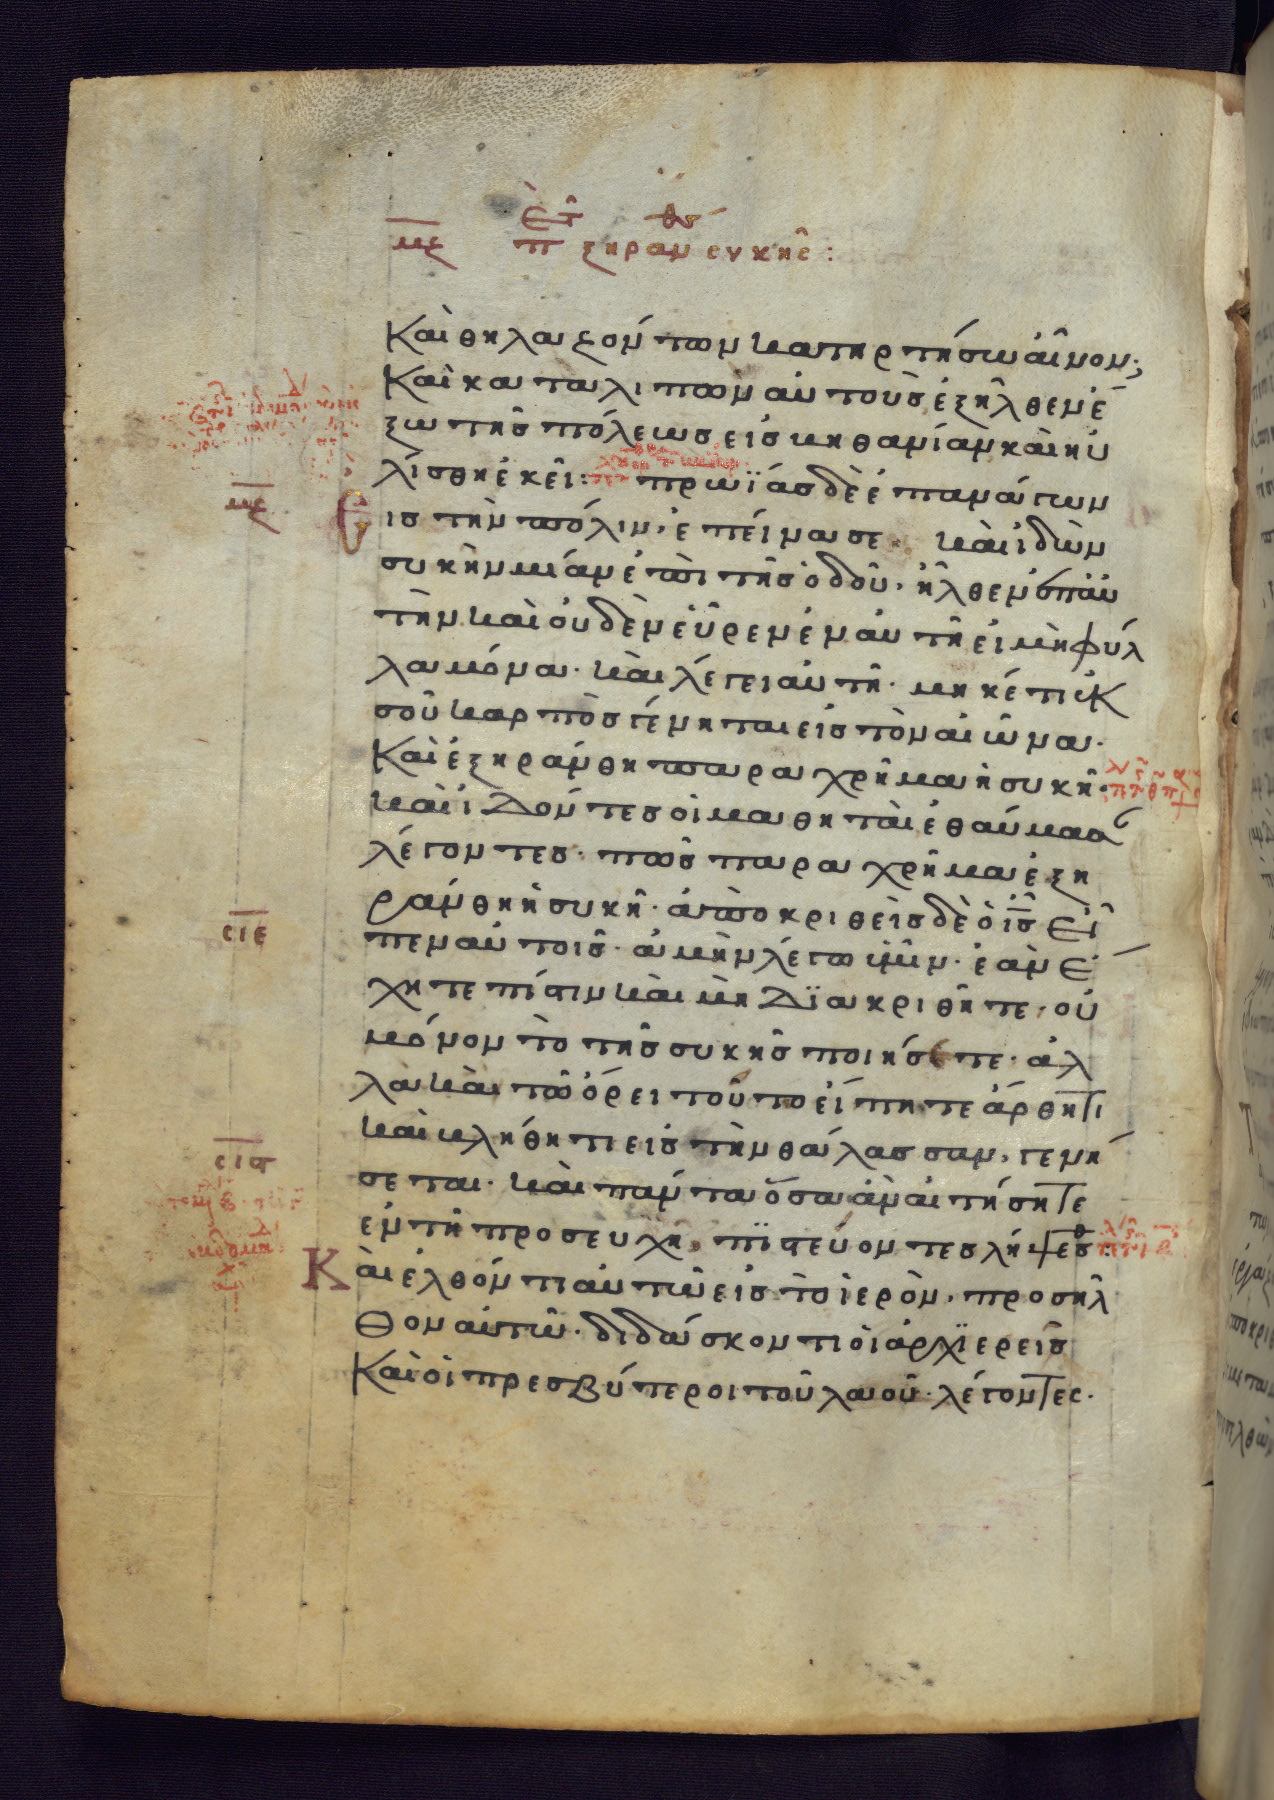 με π ξηρανθ συκῆς:
Καὶ θηλαζόντων κατηρτήσω αἶνον;
Καὶ καταλιπὼν αὐτοὺς ἐξῆλθεν ἔ
ξω τῆς πόλεως εἰς βηθανίαν καὶ ηὐ
λίσθη ἐκεῖ: πρωΐας δὲ ἐπανάγων
εἰς τὴν πόλιν, ἐπείνασε. καὶ ἰδὼν
συκὴν μίαν ἐπὶ τῆς ὁδοῦ, ἦλθεν ἐπ' αὐ
τὴν καὶ οὐδὲν εὗρεν ἐν αὐτῇ εἰ μὴ φύλ
λα μόνα. καὶ λέγει αὐτῇ. μηκέτι ἐκ
σοῦ καρπὸς γένηται εἰς τὸν αἰῶνα.
Καὶ ἐξηράνθη παραχρῆμα ἡ συκῆ.
καὶ ἰδόντες οἱ μαθηταὶ ἐθαύμασ
λέγοντες. πῶς παραχρῆμα ἐξη
ράνθη ἡ συκῆ. ἀποκριθεὶς δὲ ὁ ις εἶ
σιε
πεν αὐτοῖς. ἀμὴν λέγω ὑμῖν. ἐὰν ἔ
χητε πίστιν καὶ μὴ διακριθῆτε. οὐ
μόνον τὸ τῆς συκῆς ποιήσετε. ἀλ
λὰ κὰν τῶ ὄρει τούτο εἴπητε ἄρθητι
καὶ βλήθητι εἰς τὴν θάλασσαν, γενή
σις
σεται. καὶ πάντα ὅσα ἂν αἰτήσητε
ἐν τῇ προσευχῇ, πιστεύοντες λήψεσθ
Καὶ ἐλθόντι αὐτῶ εἰς τὸ ἱερὸν, προσῆλ
θον αὐτῶ. διδάσκοντι οἱ ἀρχιερεῖς
Καὶ οἱ πρεσβύτεροι τοῦ λαοῦ. λέγοντες.